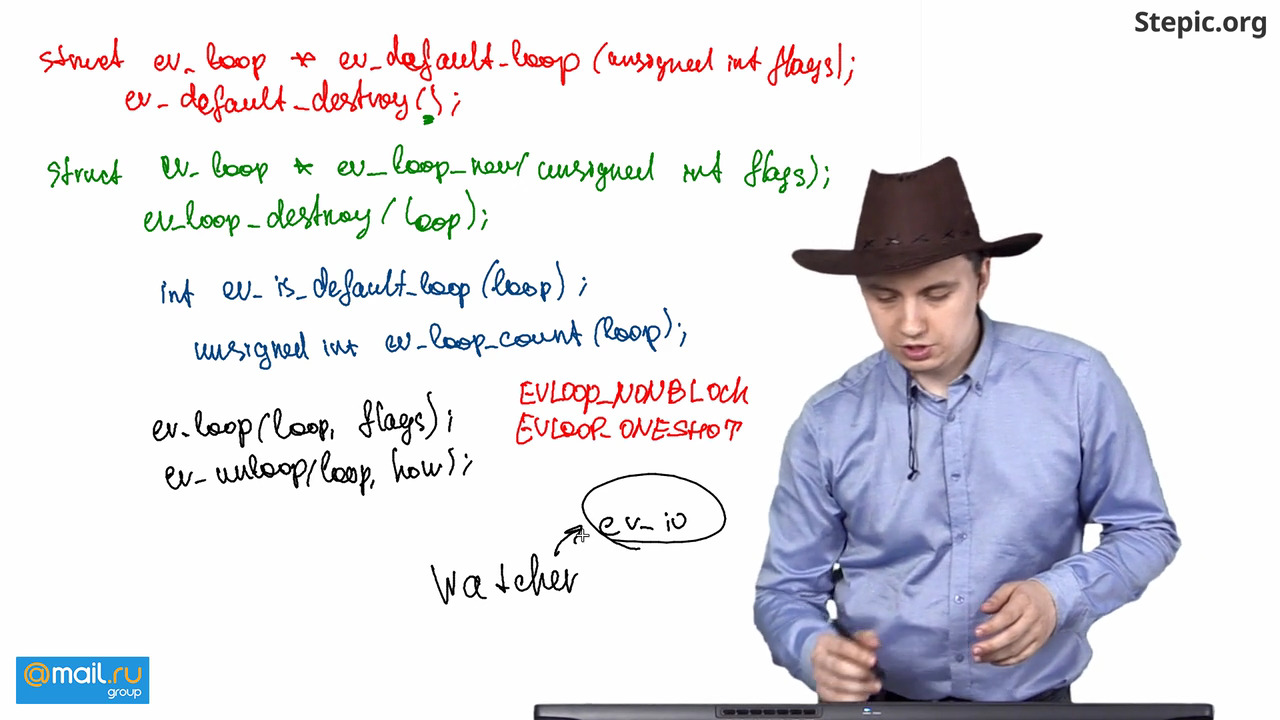 Stepic.org
struct ev_loop * ev_default_loop (unsigned int flags);
ev_default_destroy();
struct ev_loop * ev_loop_new(unsigned int flags);
ev_loop_destroy(loop);
int ev_is_default_loop(loop);
unsigned int ev_loop_count(loop);
ev_loop(loop, flags);
EVLOOP_NONBLOCK
EVLOOP_ONESHOT
ev_unloop(loop, how);
ev_io
Watcher
@mail.ru
group